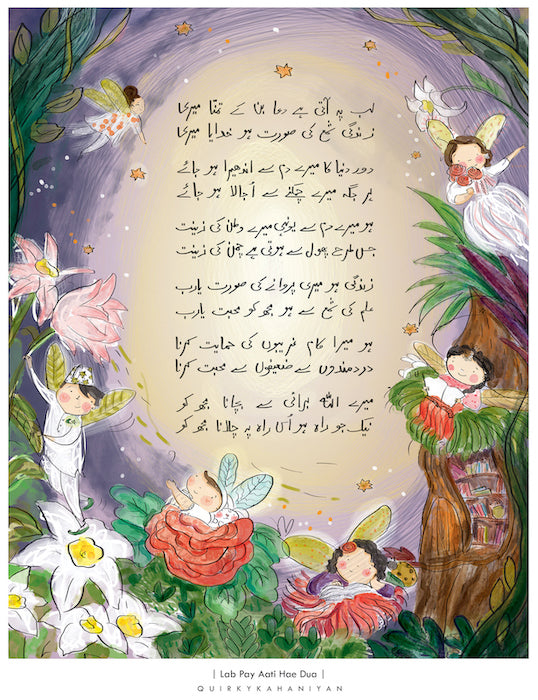 لب پہ آتی ہے دعا بن کے تمنا میری
زندگی شمع کی صورت ہو خدایا میری
دور دنیا کا میرے دم سے اندھیرا ہو جائے
ہر جگہ میرے چمکنے سے اُجالا ہو جائے
ہو میرے دم سے یونہی میرے وطن کی زینت
جس طرح پھول سے ہوتی ہے چمن کی زینت
زندگی ہو میری پروانے کی صورت یارب
علم کی شمع سے ہو مجھ کو محبت یارب
ہو میرا کام غریبوں کی حمایت کرنا
دردمندوں سے ضعیفوں سے محبت کرنا
میرے اللہ برائی سے بچانا مجھ کو
نیک جو راہ ہو اُس راہ پہ چلانا مجھ کو
| Lab Pay Aati Hae Dua |
QUIRKYKAHANIYAN